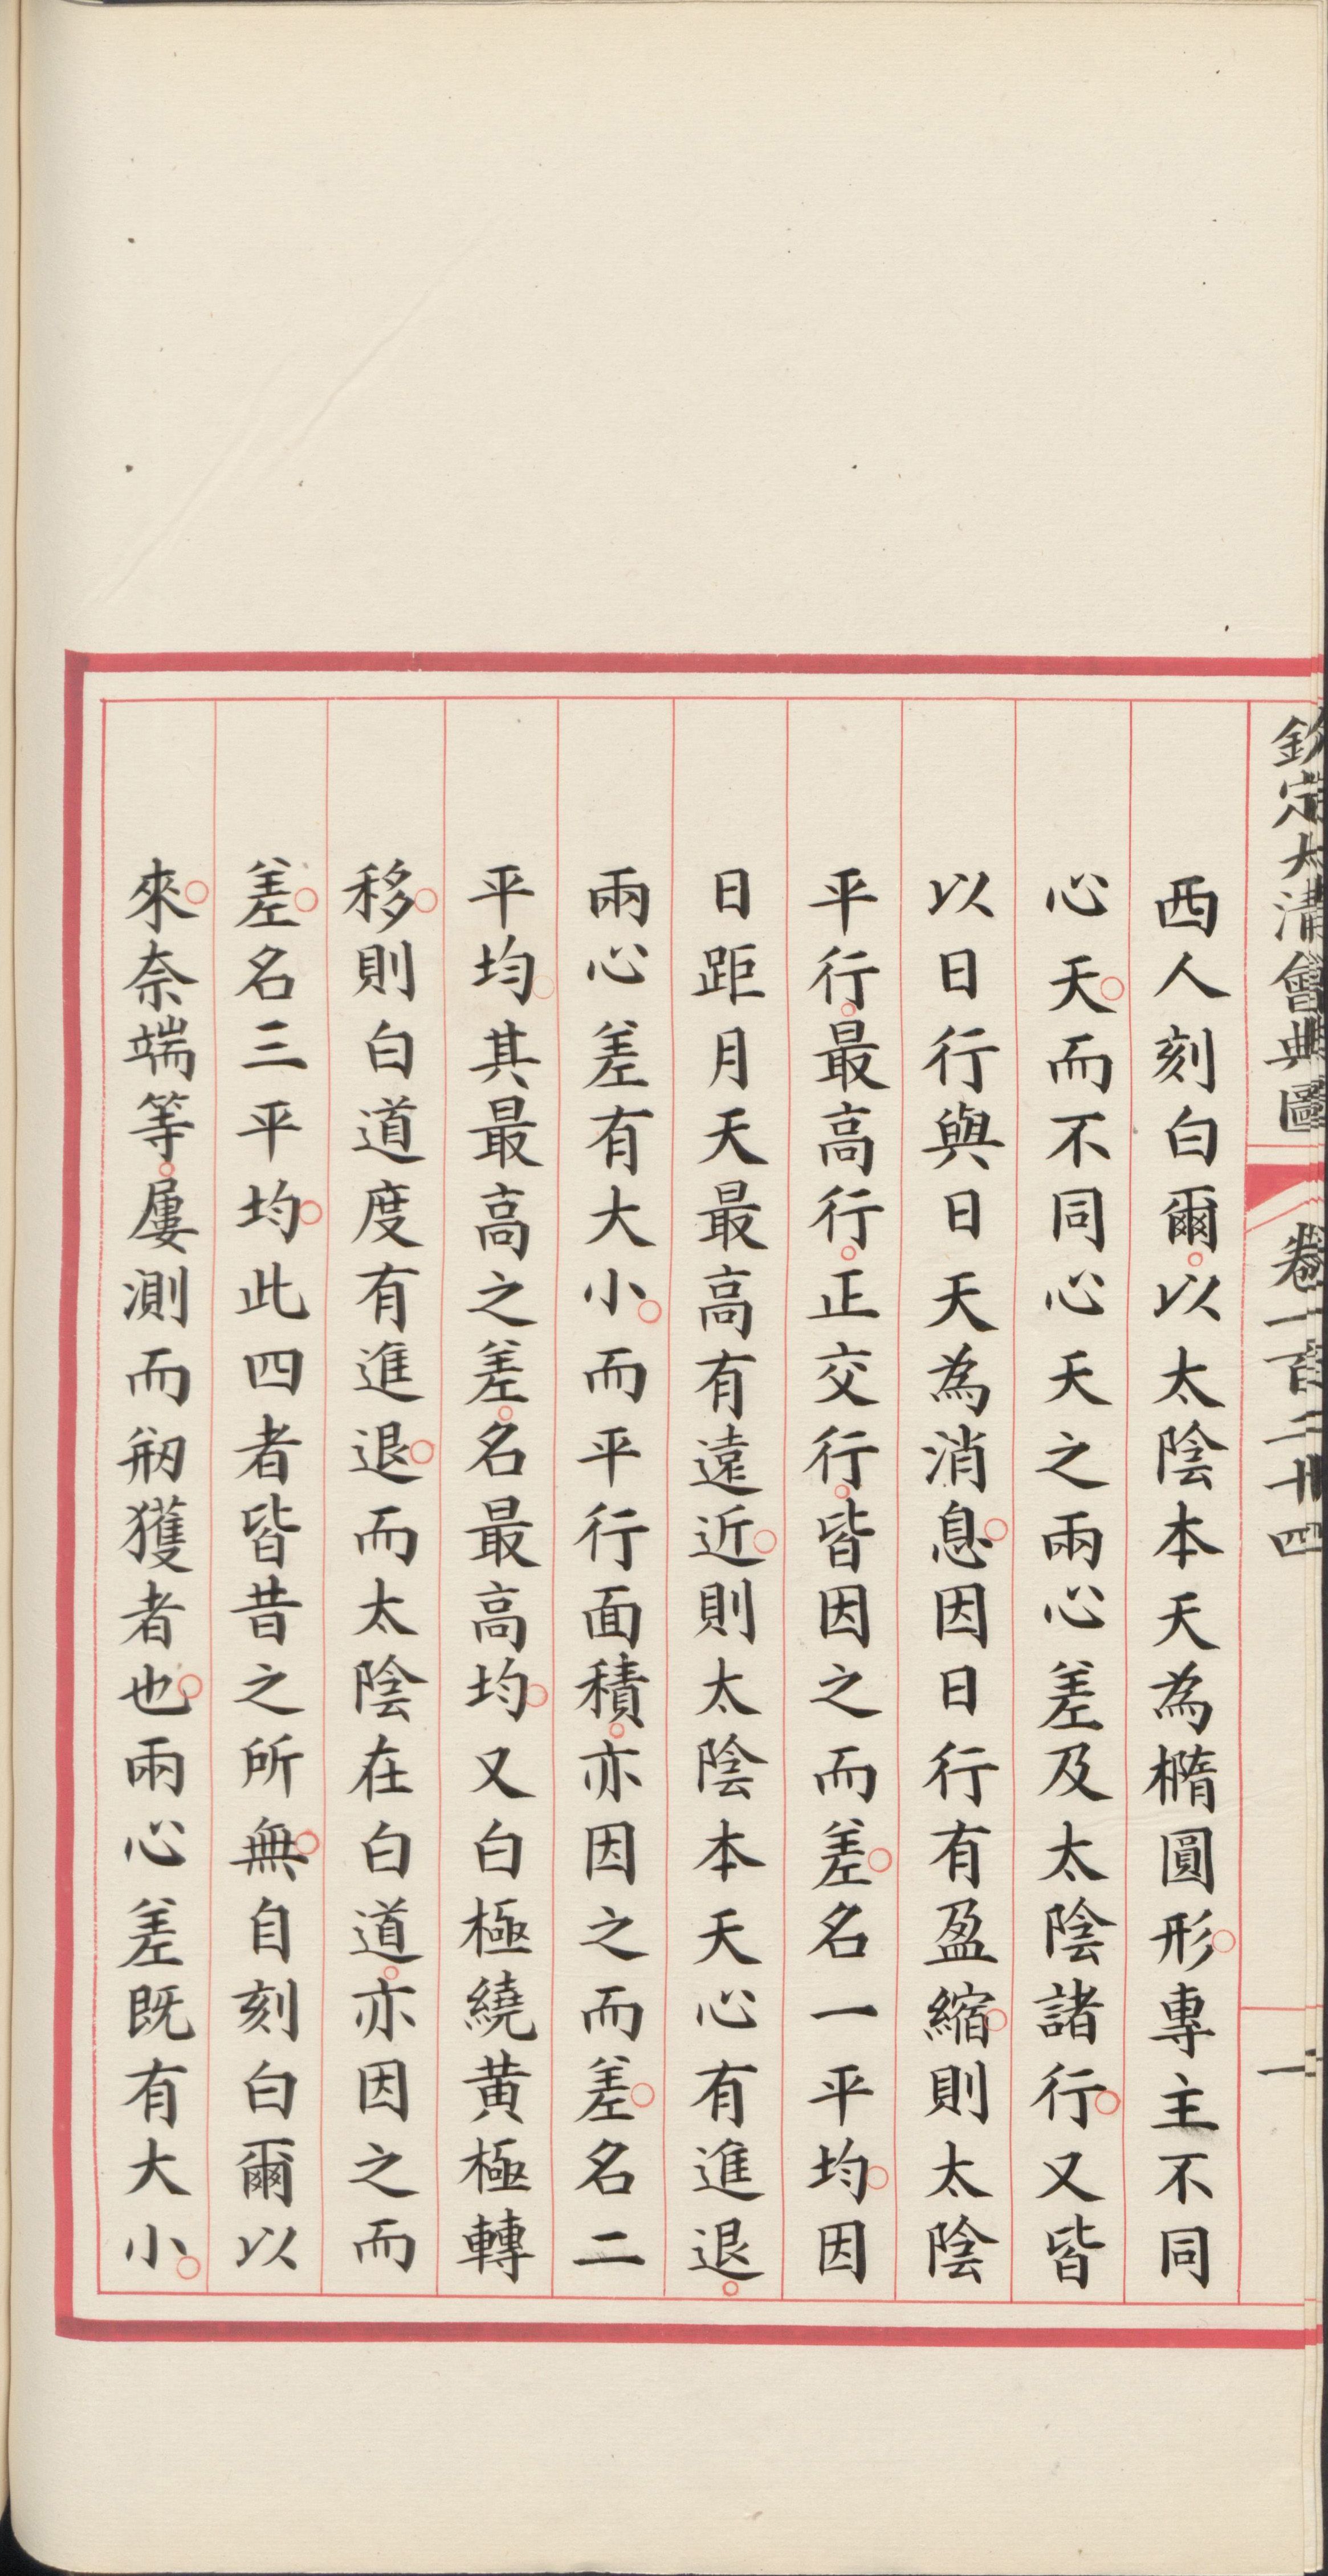 欽定大清會典圖 卷一百二十四 一
西人刻白爾。以太陰本天為橢圓形。專主不同
心天。而不同心天之兩心差及太陰諸行。又皆
以日行與日天為消息。因日行有盈縮。則太陰
平行。最高行。正交行。皆因之而差。名一平均。因
日距月天最高有遠近。則太陰本天心有進退。
兩心差有大小。而平行面積。亦因之而差。名二
平均。其最高之差。名最高均。又白極繞黃極轉
移。則白道度有進退。而太陰在白道。亦因之而
差。名三平均。此四者皆昔之所無。自刻白爾以
來。奈端等。屢測而剏獲者也。兩心差既有大小。